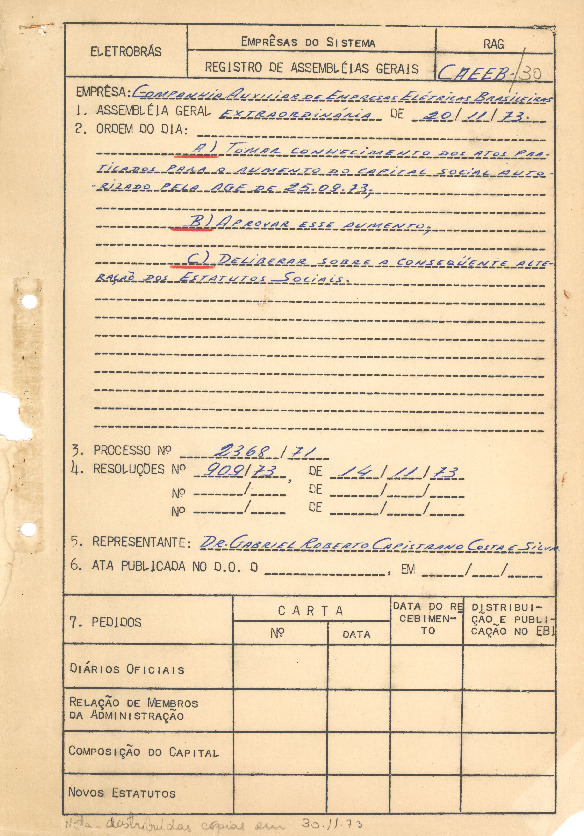 ELETROBRÁS
EMPRÊSAS DO SISTEMA
REGISTRO DE ASSEMBLÉIAS GERAIS
RAG
CAEEB-/30
EMPRÊSA: COMPANHIA AUXILIAR DE EMPRESAS ELÉTRICAS BRASILEIRAS
1. ASSEMBLÉIA GERAL EXTRAORDINÁRIA DE 20/11/73.
2. ORDEM DO DIA:
A) TOMAR CONHECIMENTO DOS ATOS PRA-
TICADOS PARA O AUMENTO DO CAPITAL SOCIAL AUTO-
RIZADO PELA AGE DE 25.09.73;
B) APROVAR ESSE AUMENTO;
C) DELIBERAR SOBRE A CONSEQÜENTE ALTE-
RAÇÃO DOS ESTATUTOS SOCIAIS.
3. PROCESSO Nº 2368/71
4. RESOLUÇÕES Nº 909/73, DE 14/11/73
Nº / DE / /
Nº / DE / /
5. REPRESENTANTE: DR. GABRIEL ROBERTO CAPISTRANO COSTA E SILVA
6. ATA PUBLICADA NO D.O. D , EM / /
7. PEDIDOS
CARTA
Nº
DATA
DATA DO RE
CEBIMEN-
TO
DISTRIBUI-
ÇÃO E PUBLI-
CAÇÃO NO EBI
DIÁRIOS OFICIAIS
RELAÇÃO DE MEMBROS
DA ADMINISTRAÇÃO
COMPOSIÇÃO DO CAPITAL
NOVOS ESTATUTOS
Nota - distribuídas cópias em 30.11.73